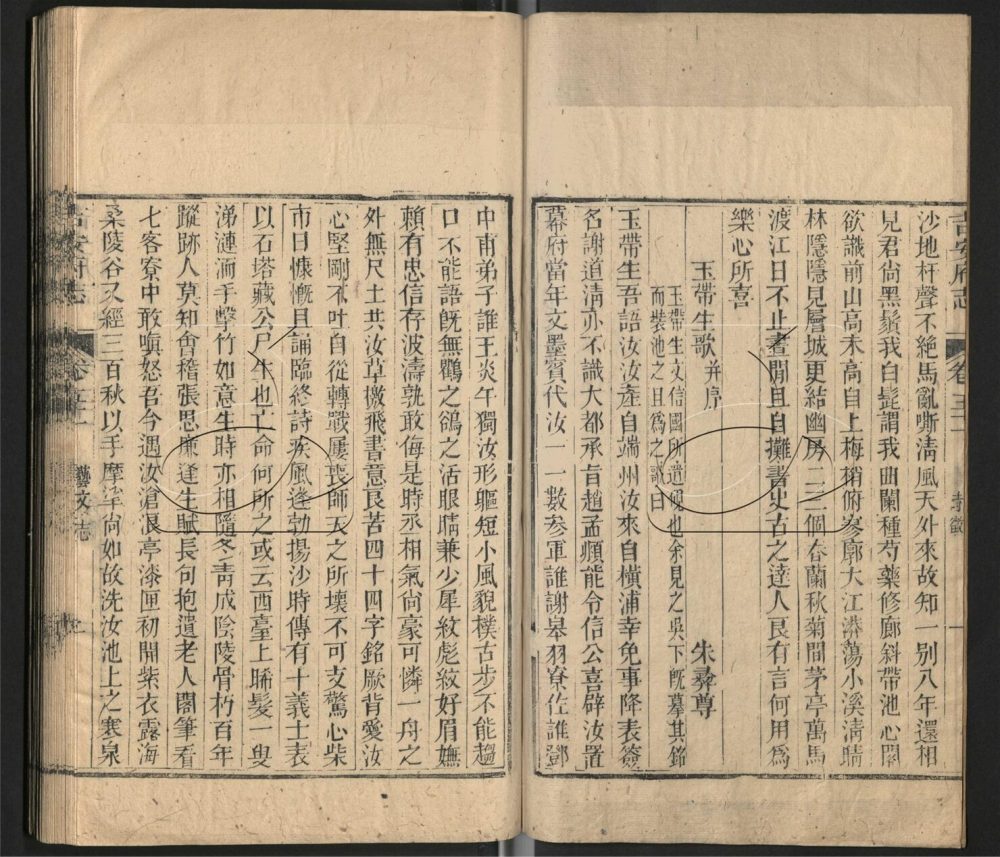 吉安府志
卷五十二
沙地杵聲不絶馬亂嘶淸風天外來故知一別八年還相
見君尙黑鬚我白髭謂我曲闌種芍藥修廊斜帶池心閣
欲識前山高未高自上梅梢俯寥廓大江漭蕩小溪淸晴
林隱隱見層城更結幽房二三個春蘭秋菊間茅亭萬馬
渡江日不止晝閒且自攤書史古之達人良有言何用爲
樂心所喜
玉帶生歌并序
朱彝尊
玉帶生文信國所遺硯也余見之吳下旣摹其銘
而裝池之且爲之歌曰
玉帶生吾語汝汝產自端州汝來自橫浦幸免事降表簽
名謝道淸亦不識大都承旨趙孟頫能令信公喜辟汝置
幕府當年文墨賓代汝一一數參軍誰謝皋羽寮佐誰鄧
中甫弟子誰王炎午獨汝形軀短小風貌樸古步不能趨
口不能語旣無鸜之鵒之活眼睛兼少犀紋彪紋好眉嫵
賴有忠信存波濤孰敢侮是時丞相氣尙豪可憐一舟之
外無尺土共汝草檄飛書意良苦四十四字銘厥背愛汝
心堅剛不吐自從轉戰屢喪師天之所壞不可支驚心柴
市日慷慨且誦臨終詩疾風蓬勃揚沙時傳有十義士表
以石塔藏公尸生也亡命何所之或云西臺上晞髮一叟
涕漣洏手擊竹如意生時亦相隨冬靑成陰陵骨朽百年
蹤跡人莫知會稽張思廉逢生賦長句抱遺老人閣筆看
七客寮中敢嗔怒吾今遇汝滄浪亭漆匣初開紫衣露海
桑陵谷又經三百秋以手摩挲尙如故洗汝池上之寒泉
吉安府志
卷五十二
藝文志